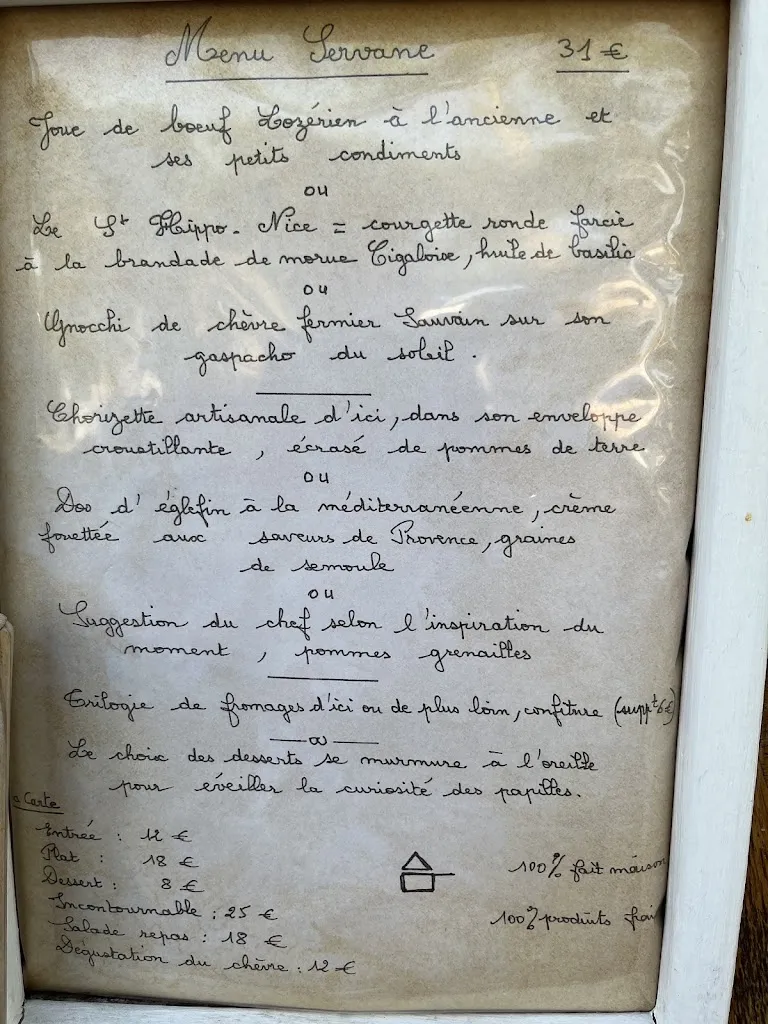 Menu Servane 31 €
Joue de boeuf Lozérien à l'ancienne et
ses petits condiments
ou
Le St Hippo. Nice = courgette ronde farcie
à la brandade de morue Cigaloise, huile de basilic
ou
Gnocchi de chèvre fermier Sauvain sur son
gaspacho du soleil.
Chorizette artisanale d'ici, dans son enveloppe
croustillante, écrasé de pommes de terre
ou
Dos d'églefin à la méditerranéenne, crème
fouettée aux saveurs de Provence, graines
de semoule
ou
Suggestion du chef selon l'inspiration du
moment, pommes grenailles
Trilogie de fromages d'ici ou de plus loin, confiture (suppt 6€)
ou
Le choix des desserts se murmure à l'oreille
pour éveiller la curiosité des papilles.
a Carte
Entrée : 12 €
Plat : 18 €
Dessert : 8 €
Incontournable : 25 €
Salade repas : 18 €
Dégustation du chèvre : 12 €
100% fait maison
100% produits frai